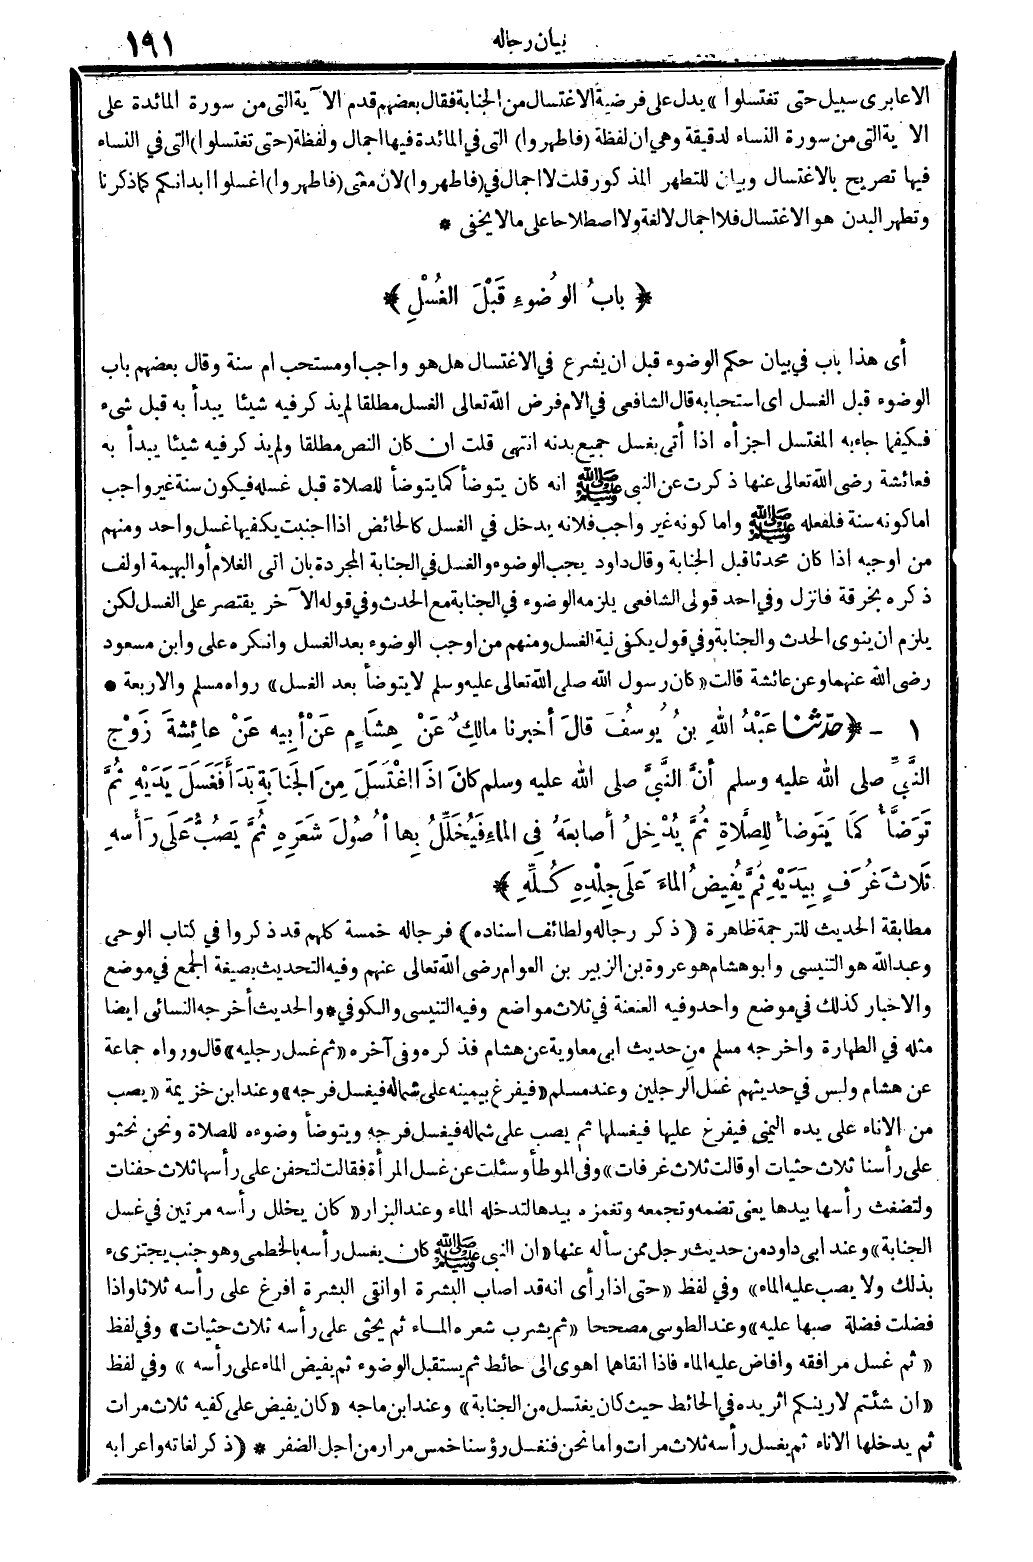 بيان رجاله ١٩١
الا عابرى سبيل حتى تغتسلوا» يدل على فرضية الاغتسال من الجنابة فقال بعضهم قدم الآية التى من سورة المائدة على
الآية التى من سورة النساء لدقيقة وهى ان لفظة (فاطهروا) التى فى المائدة فيها اجمال ولفظة (حتى تغتسلوا) التى فى النساء
فيها تصريح بالاغتسال وبيان للتطهر المذكور قلت لا اجمال فى (فاطهروا) لان معنى (فاطهروا) اغسلوا ابدانكم كما ذكرنا
وتطهر البدن هو الاغتسال فلا اجمال لا لغة ولا اصطلاحا على ما لا يخفى *
﴿ بابُ الوُضوءِ قَبْلَ الغُسْلِ ﴾
أى هذا باب فى بيان حكم الوضوء قبل ان يشرع فى الاغتسال هل هو واجب او مستحب ام سنة وقال بعضهم باب
الوضوء قبل الغسل اى استحبابه قال الشافعى فى الام فرض الله تعالى الغسل مطلقا لم يذكر فيه شيئا يبدأ به قبل شىء
فكيفما جاء به المغتسل اجزأه اذا أتى بغسل جميع بدنه انتهى قلت ان كان النص مطلقا ولم يذكر فيه شيئا يبدأ به
فعائشة رضى الله تعالى عنها ذكرت عن النبى ﷺ انه كان يتوضأ كما يتوضأ للصلاة قبل غسله فيكون سنة غير واجب
اما كونه سنة فلفعله ﷺ واما كونه غير واجب فلانه يدخل فى الغسل كالحائض اذا اجنبت يكفيها غسل واحد ومنهم
من اوجبه اذا كان محدثا قبل الجنابة وقال داود يجب الوضوء والغسل فى الجنابة المجردة بان اتى الغلام أو البهيمة او لف
ذكره بخرقة فانزل وفى احد قولى الشافعى يلزمه الوضوء فى الجنابة مع الحدث وفى قوله الآخر يقتصر على الغسل لكن
يلزم ان ينوى الحدث والجنابة وفى قول يكفى نية الغسل ومنهم من اوجب الوضوء بعد الغسل وانكره على وابن مسعود
رضى الله عنهما وعن عائشة قالت «كان رسول الله صلى الله تعالى عليه وسلم لا يتوضأ بعد الغسل» رواه مسلم والاربعة *
١ - ﴿ حَدَّثَنَا عَبْدُ اللهِ بنُ يُوسُفَ قالَ أخبرنا مالِكٌ عَنْ هِشَامٍ عَنْ أبِيهِ عَنْ عائِشةَ زَوْجِ
النَّبىِّ صلى الله عليه وسلم أنَّ النَّبىَّ صلى الله عليه وسلم كانَ اذَا اغْتَسَلَ مِنَ الجَنابَةِ بَدَأَ فَغَسَلَ يَدَيْهِ ثُمَّ
تَوَضَّأَ كَمَا يَتَوضأُ لِلصَّلاةِ ثُمَّ يُدْخِلُ أصابعَهُ فى الماءِ فَيُخَلِّلُ بِها أُصُولَ شَعَرِهِ ثُمَّ يَصُبُّ عَلَى رَأْسهِ
ثَلاثَ غُرَفٍ بِيَدَيْهِ ثُمَّ يُفِيضُ الماءَ عَلَى جِلْدِهِ كُلِّهِ ﴾
مطابقة الحديث للترجمة ظاهرة (ذكر رجاله ولطائف اسناده) فرجاله خمسة كلهم قد ذكروا فى كتاب الوحى
وعبد الله هو التنيسى وابو هشام هو عروة بن الزبير بن العوام رضى الله تعالى عنهم وفيه التحديث بصيغة الجمع فى موضع
والاخبار كذلك فى موضع واحد وفيه العنعنة فى ثلاث مواضع وفيه التنيسى والكوفى * والحديث أخرجه النسائى ايضا
مثله فى الطهارة واخرجه مسلم من حديث ابى معاوية عن هشام فذكره وفى آخره «ثم غسل رجليه» قال ورواه جماعة
عن هشام وليس فى حديثهم غسل الرجلين وعند مسلم «فيفرغ بيمينه على شماله فيغسل فرجه» وعند ابن خزيمة «يصب
من الاناء على يده اليمنى فيفرغ عليها فيغسلها ثم يصب على شماله فيغسل فرجه ويتوضأ وضوءه للصلاة ونحن نحثو
على رأسنا ثلاث حثيات او قالت ثلاث غرفات» وفى الموطأ وسئلت عن غسل المرأة فقالت لتحفن على رأسها ثلاث حفنات
ولتضغث رأسها بيدها يعنى تضمه وتجمعه وتغمزه بيدها لتدخله الماء وعند البزار «كان يخلل رأسه مرتين فى غسل
الجنابة» وعند ابى داود من حديث رجل ممن سأله عنها «ان النبى ﷺ كان يغسل رأسه بالخطمى وهو جنب يجتزىء
بذلك ولا يصب عليه الماء» وفى لفظ «حتى اذا رأى انه قد اصاب البشرة او انقى البشرة افرغ على رأسه ثلاثا واذا
فضلت فضلة صبها عليه» وعند الطوسى مصححا «ثم يشرب شعره الماء ثم يحثى على رأسه ثلاث حثيات» وفى لفظ
« ثم غسل مرافقه وافاض عليه الماء فاذا انقاهما اهوى الى حائط ثم يستقبل الوضوء ثم يفيض الماء على رأسه » وفى لفظ
«ان شئتم لارينكم اثر يده فى الحائط حيث كان يغتسل من الجنابة» وعند ابن ماجه «كان يفيض على كفيه ثلاث مرات
ثم يدخلها الاناء ثم يغسل رأسه ثلاث مرات واما نحن فنغسل رؤسنا خمس مرار من اجل الضفر * (ذكر لغاته واعرابه